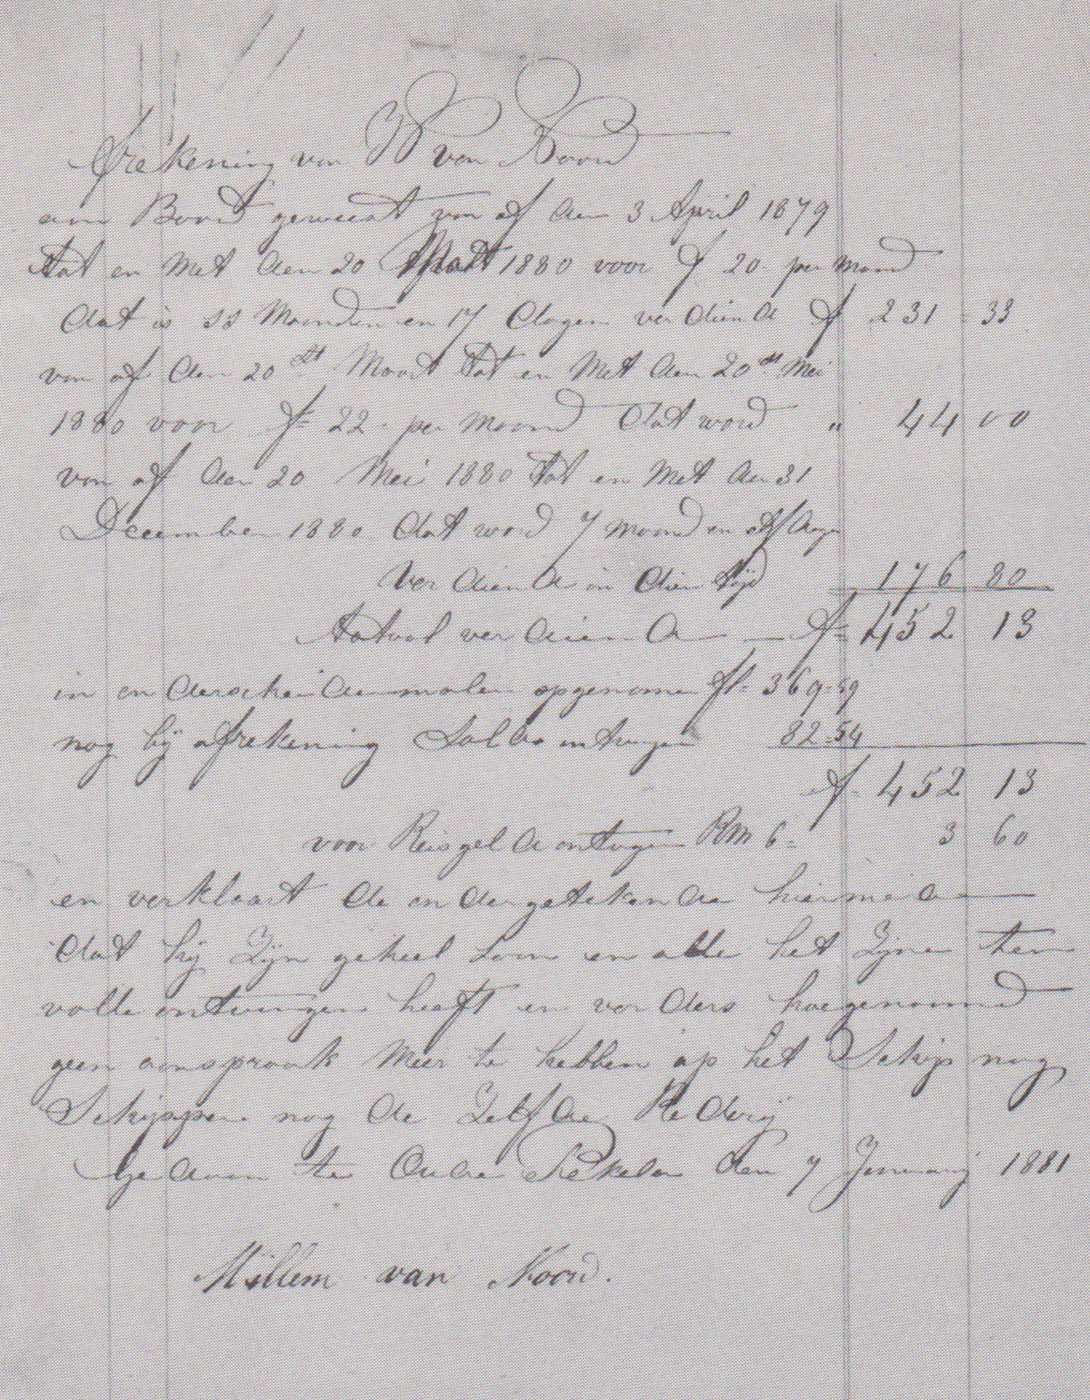 Afrekening van W van Noord
aan Boord geweest van af den 3 April 1879
tot en Met den 20 Maart 1880 voor f 20 per maand
dat is 11 Maanden en 17 dagen verdiend f 231 = 33
van af den 20st Maart tot en Met den 20st Mei
1880 voor f= 22 = per maand dat word " 44 00
van af den 20 Mei 1880 tot en Met den 31
December 1880 dat word 7 maand en dagen
verdiend in dien tijd 176 80
totaal verdiend — f= 452 13
in onderscheidenmalen opgenomen fl= 369=59
nog bij afrekening Saldo ontvangen 82=54
f= 452 13
voor Reisgeld ontvagen RM 6= 3 60
en verklaart de ondergetekende hiermede
dat hij Zijn geheel Loon en alle het Zijne ten
volle ontvangen heeft en verders hoegenaamd
geen aanspraak Meer te hebben op het Schip nog
Schipper nog de Zelfde Rederij
Gedaan te Oude Pekela den 7 Januarij 1881
Willem van Noord.